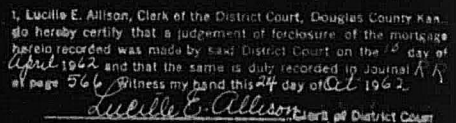 I, Lucille E. Allison, Clerk of the District Court, Douglas County Kan.
do hereby certify that a judgement of forclosure of the mortgage
herein recorded was made by said District Court on the day of
April 1962 and that the same is duly recorded in Journal RR
at page 566 Witness my hand this 24 day of Oct 1962
Lucille E. Allison
Clerk of District Court